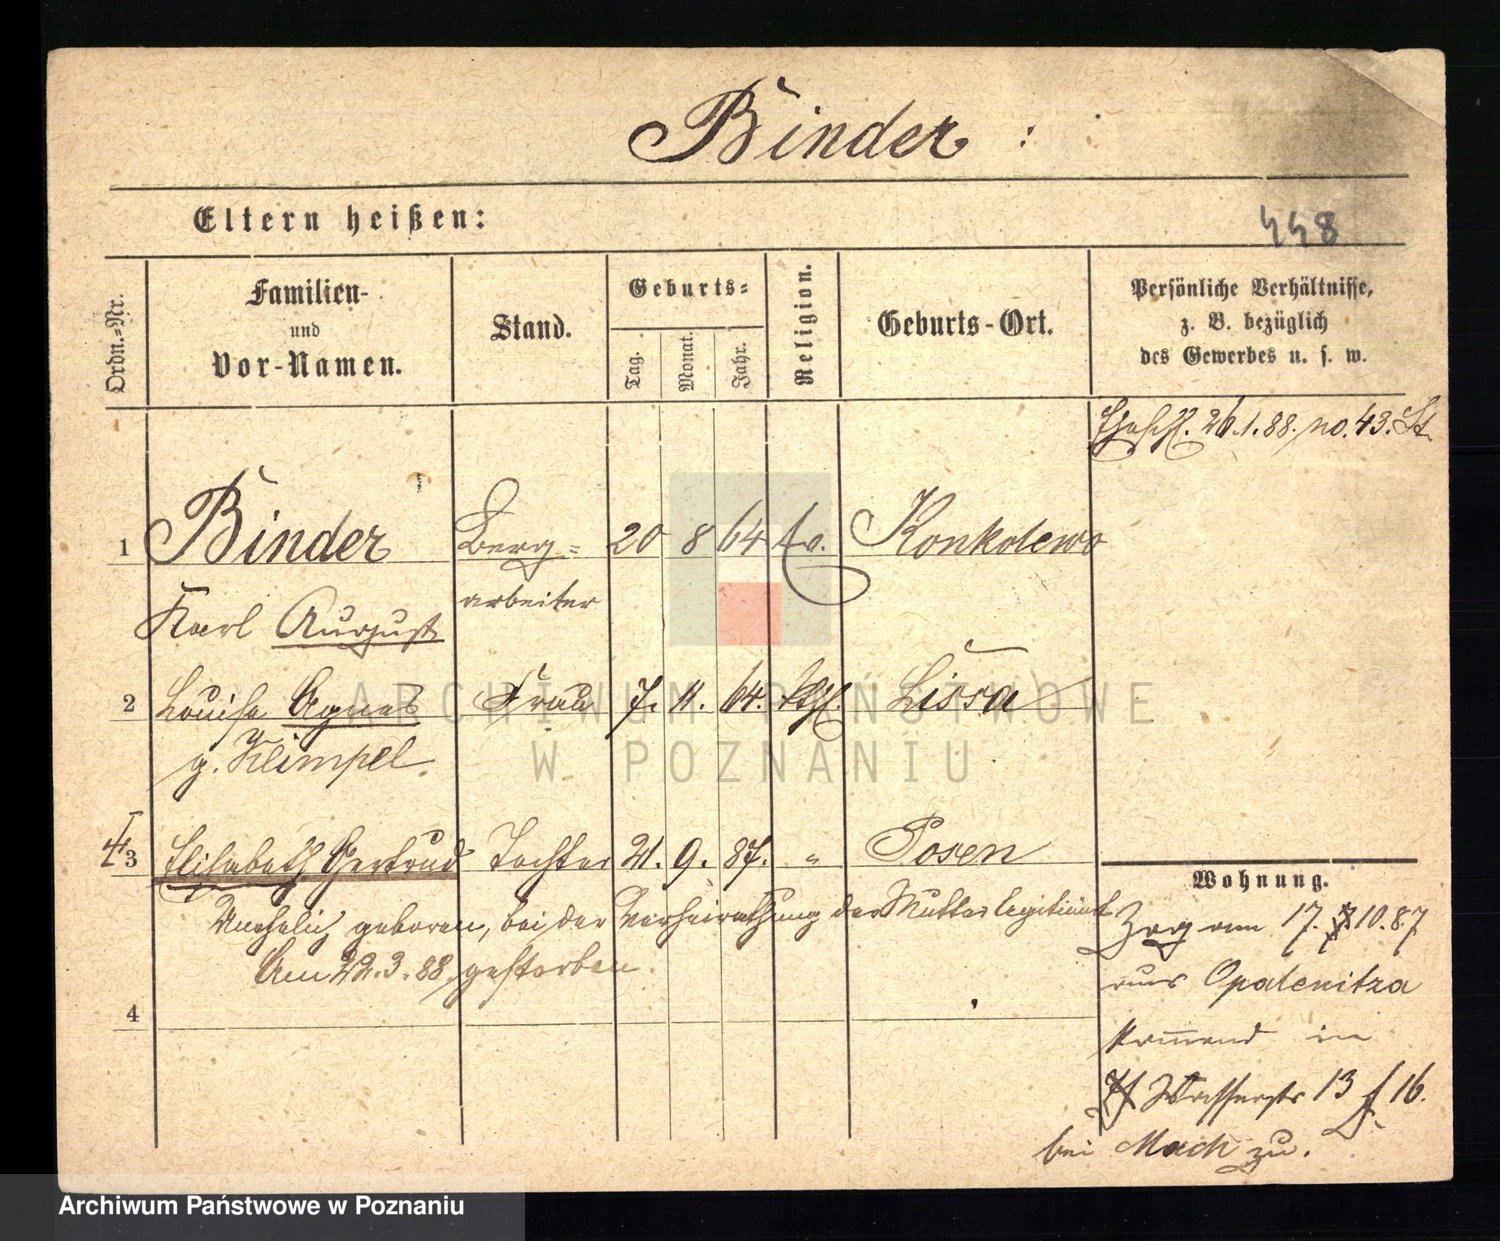 Binder :
Eltern heißen:
448
Ordn.-Nr.
Familien-
und
Vor-Namen.
Stand.
Geburts-
Tag.
Monat.
Jahr.
Religion.
Geburts-Ort.
Persönliche Verhältnisse,
z. B. bezüglich
des Gewerbes u. s. w.
Eheschl. 26.1.88. no. 43. St.
1 Binder Berg- 20 8 64 ev. Konkolewo
Karl August arbeiter
2 Louise Agnes Frau 7. 11. 64. kth. Lissa
g. Klimpel.
3 Elisabeth Gertrud Tochter 21. 9. 87. " Posen
Unehelich geboren, bei der Verheirathung der Mutter legitimirt
Am 22.3.88 gestorben.
4
Wohnung.
Zog am 17. 10.87
aus Opalenitza
kommend in
Wasserstr 13 16.
bei Mach zu.
ARCHIWUM PAŃSTWOWE
W POZNANIU
Archiwum Państwowe w Poznaniu